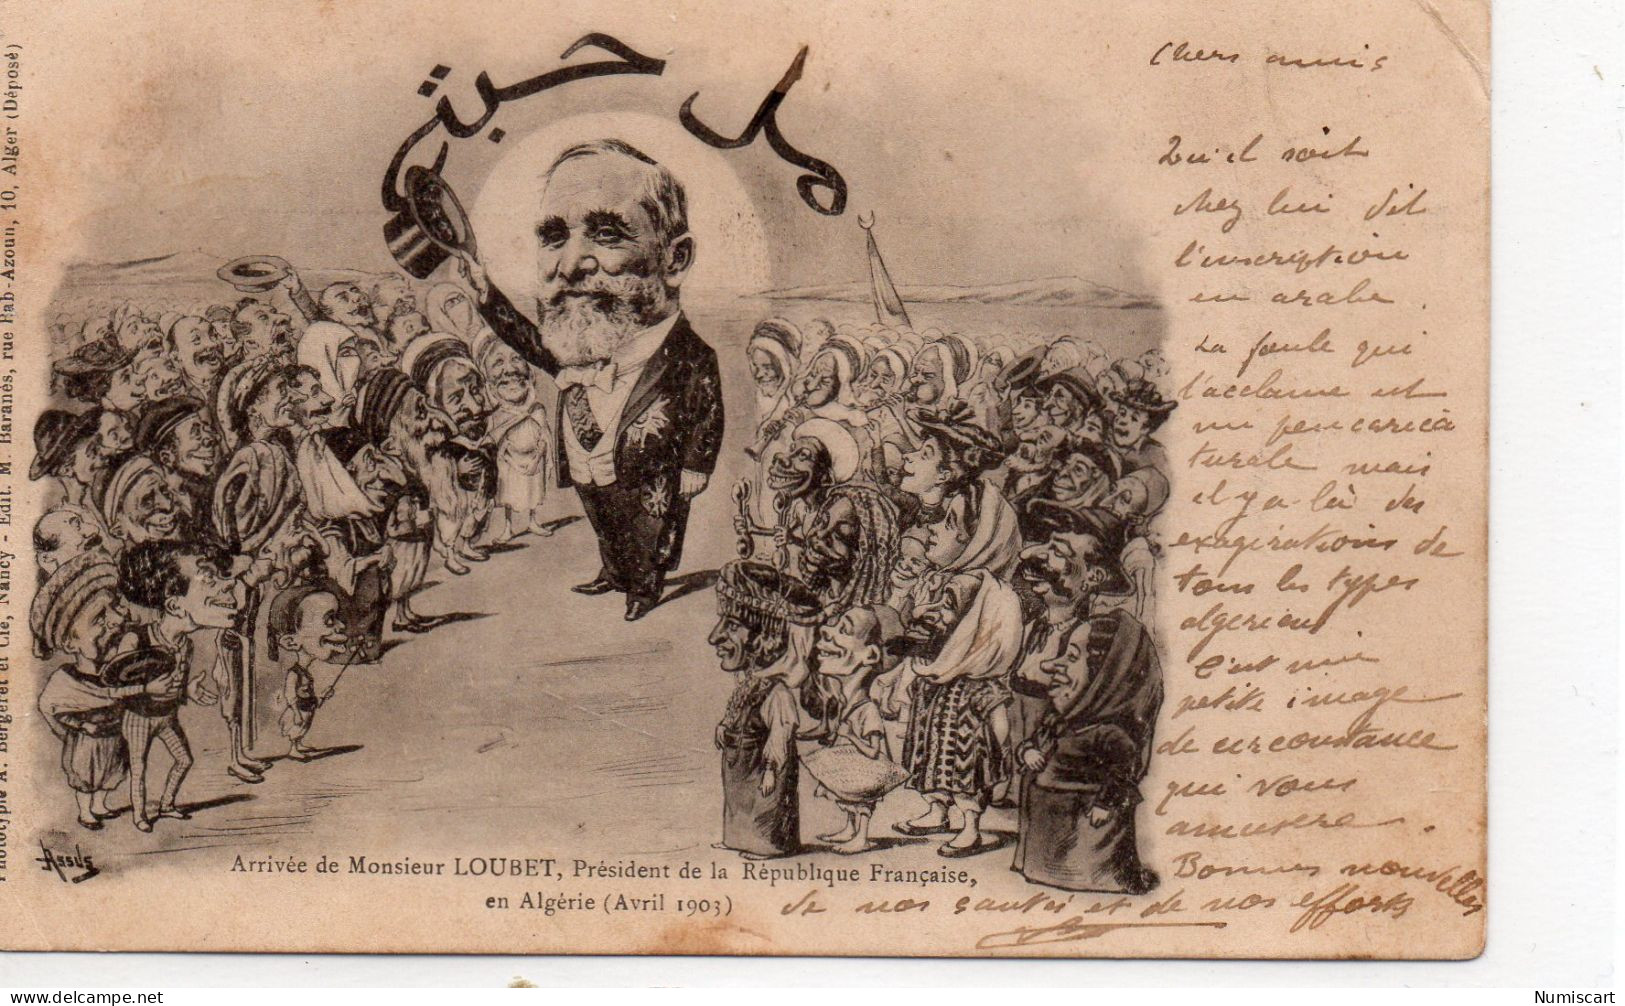 Phototypie A. Bergeret et Cie, Nancy - Edit. M. Baranès, rue Bab-Azoun, 10, Alger (Déposé)
Chers amis
Qu'il soit
chez lui dit
l'inscription
en arabe.
La foule qui
l'acclame est
un peu carica
turale mais
il y a là des
exagérations de
tous les types
algériens
C'est une
petite image
de circonstance
qui vous
amusera.
Bonnes nouvelles
de nos santés et de nos efforts
Assus
Arrivée de Monsieur LOUBET, Président de la République Française,
en Algérie (Avril 1903)
Numiscart